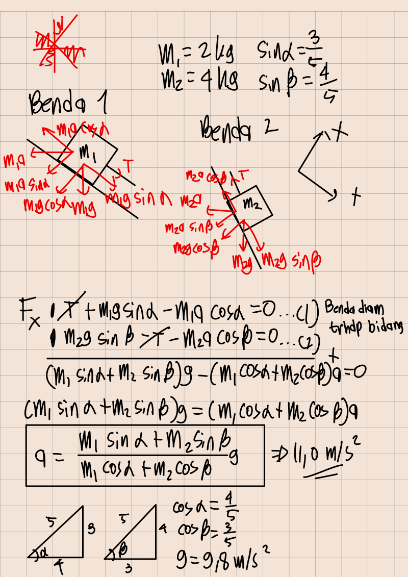 m₁ = 2 kg sin α = 3/5
m₂ = 4 kg sin β = 4/5
Benda 1
Benda 2
m₁a cos α
m₁
m₁a
T
m₁a sin α
m₁g cos α
m₁g
m₁g sin α
x
+
m₂a cos β
T
m₂a
m₂
m₂a sin β
m₂g cos β
m₂g
m₂g sin β
Fx
T + m₁g sin α - m₁a cos α = 0 ...(1)
Benda diam
trhdp bidang
m₂g sin β - T - m₂a cos β = 0 ...(2)
+
(m₁ sin α + m₂ sin β)g - (m₁ cos α + m₂ cos β)a = 0
(m₁ sin α + m₂ sin β)g = (m₁ cos α + m₂ cos β)a
a = (m₁ sin α + m₂ sin β)/(m₁ cos α + m₂ cos β) g ⇒ 11,0 m/s²
5 3 α 4
5 4 β 3
cos α = 4/5
cos β = 3/5
g = 9,8 m/s²